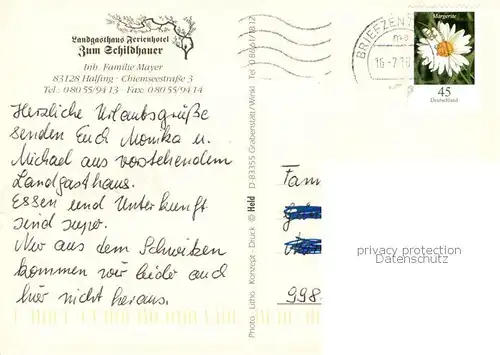 Landgasthaus Ferienhotel
Zum Schildhauer
Inh. Familie Mayer
83128 Halfing · Chiemseestraße 3
Tel.: 0 80 55/94 13 · Fax: 0 80 55/94 14
Herzliche Urlaubsgrüße
senden Euch Monika u.
Michael aus vorstehendem
Landgasthaus.
Essen und Unterkunft
sind super.
Nur aus dem Schwitzen
kommen wir leider auch
hier nicht heraus.
Photo · Litho · Konzept · Druck © Held D-83355 Grabenstätt/Winkl · Tel.
BRIEFZEN
Margerite
45
Deutschland
Fam
998
privacy protection
Datenschutz